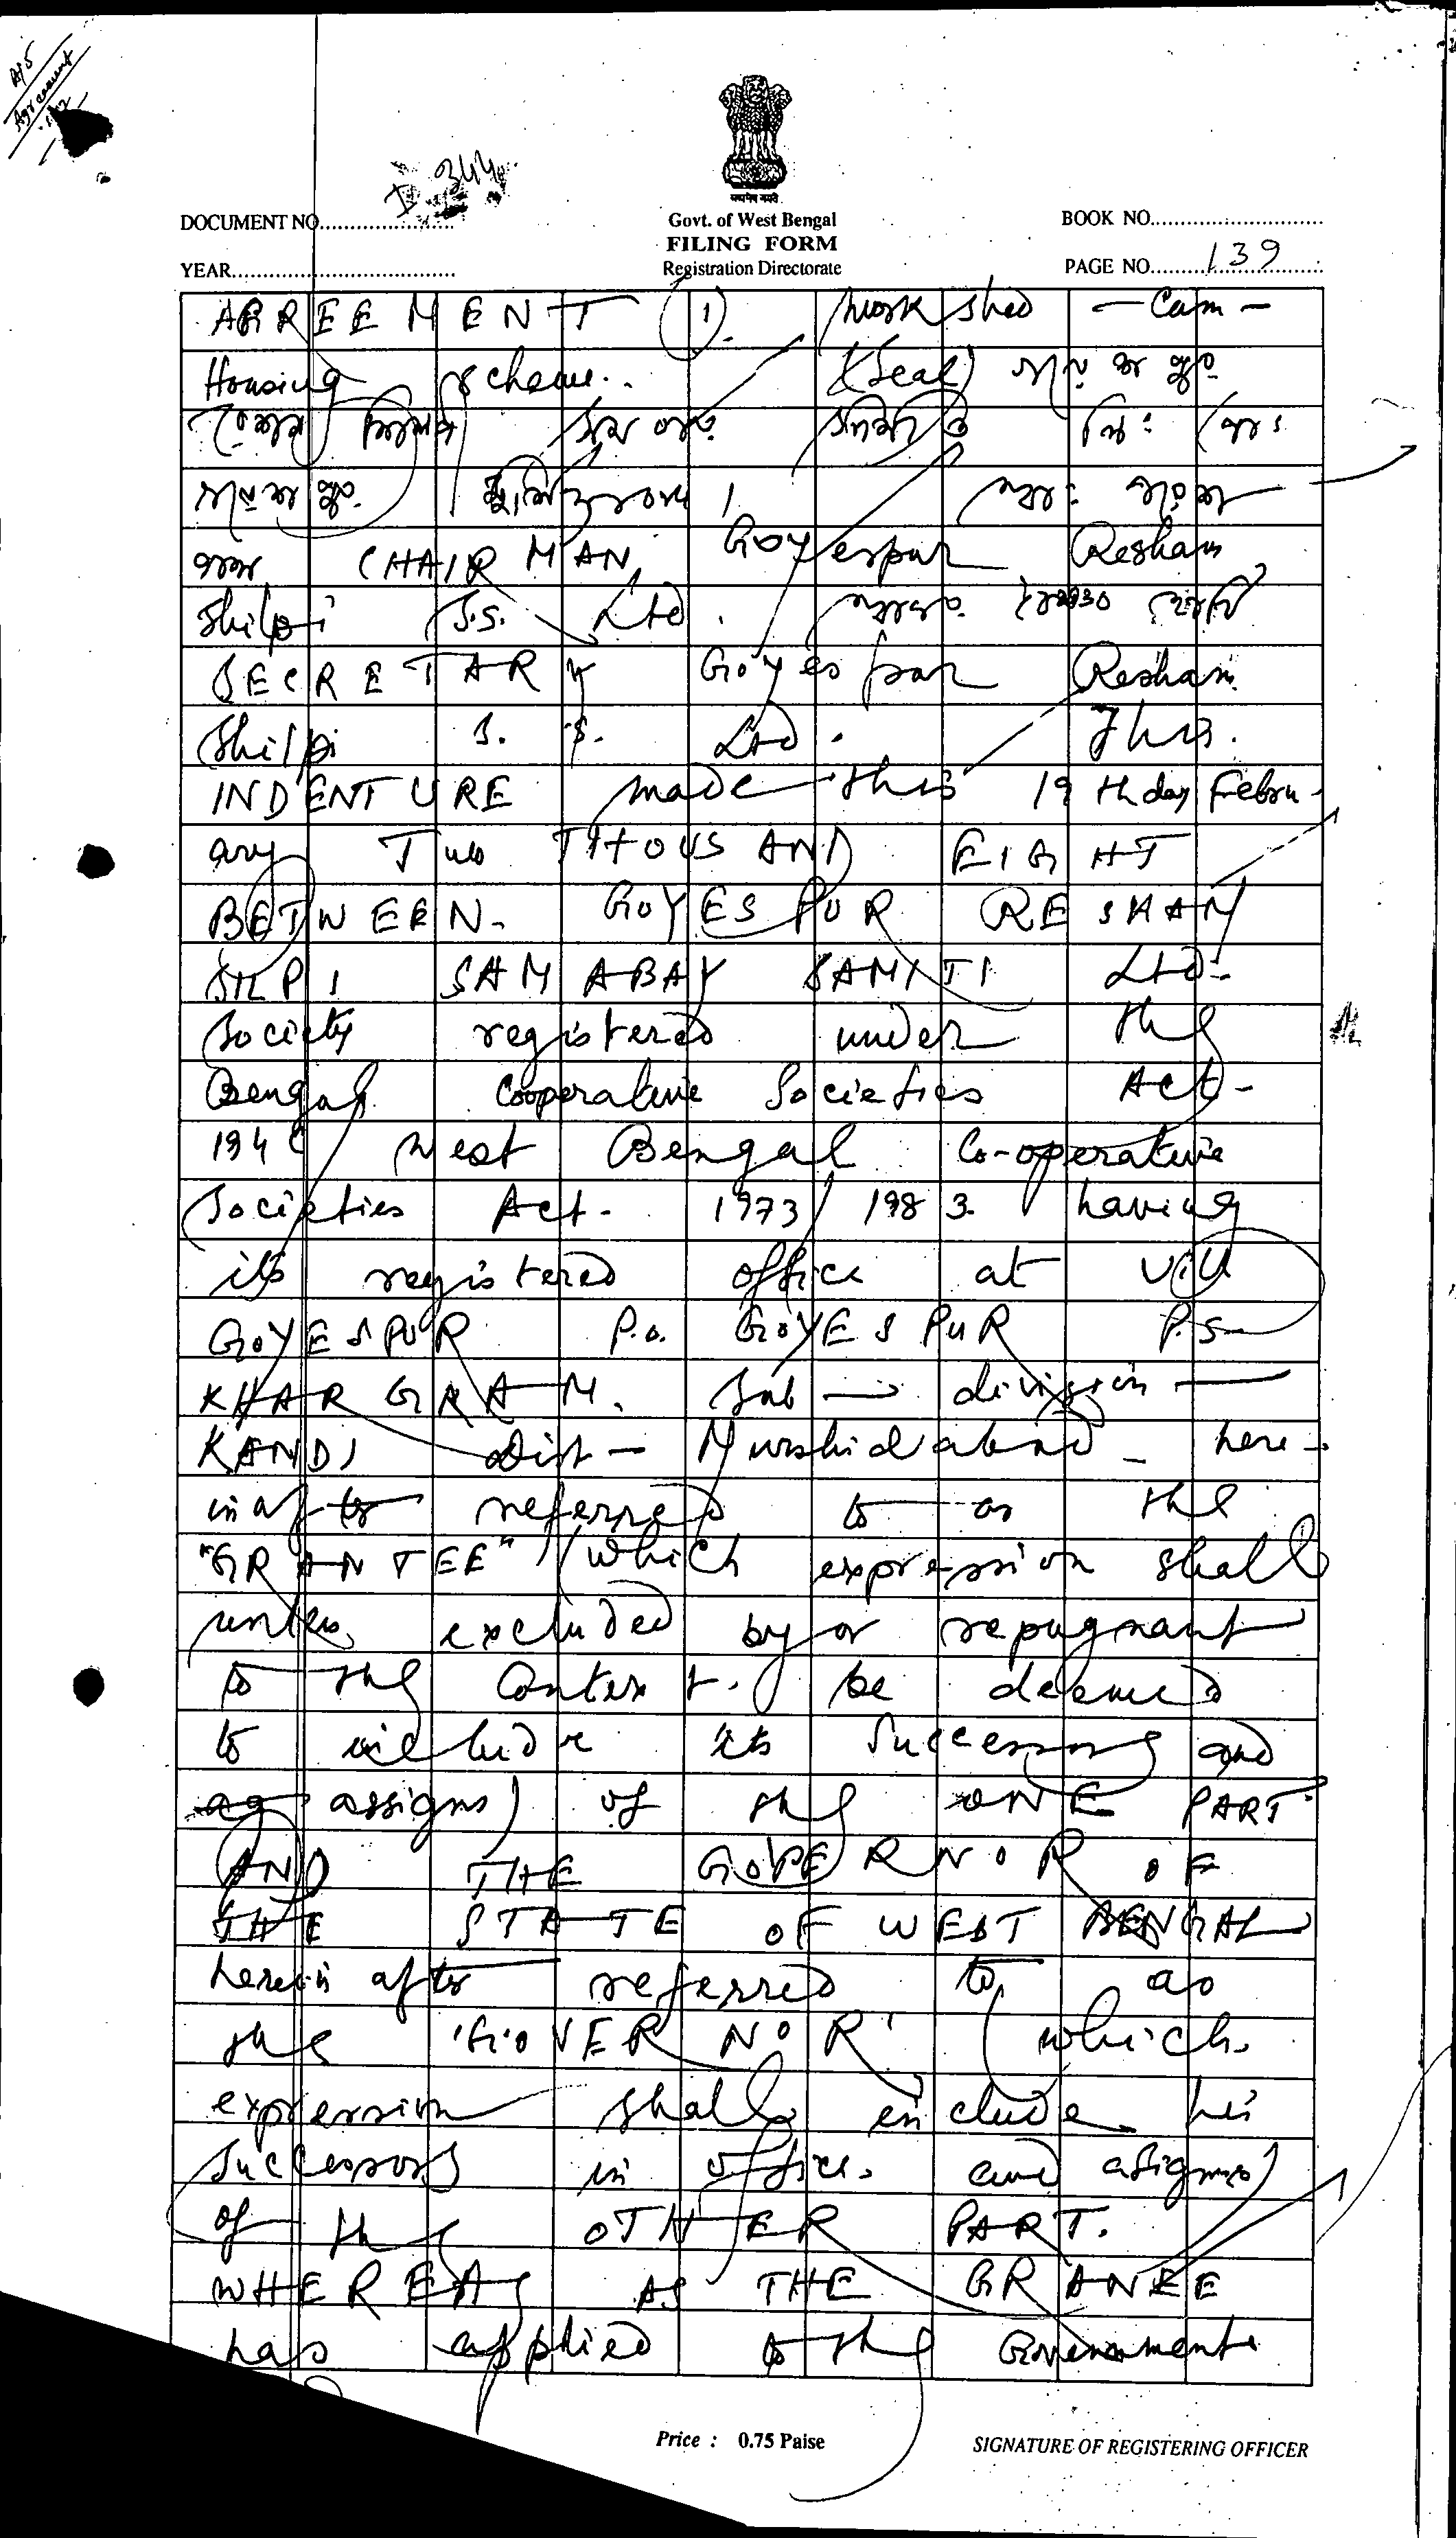 A/5
Agreement
I 344
सत्यमेव जयते
DOCUMENT NO.
Govt. of West Bengal
BOOK NO.
FILING FORM
YEAR
Registration Directorate
PAGE NO. 139
AGREEMENT (1). Work shed - Cum -
Housing scheme.. (Seal)
রেশম শিল্পী সমবায় সমিতি লিঃ

CHAIRMAN, Goyespur Resham
Shilpi S.S. Ltd.
SECRETARY Goyespur Resham
Shilpi S. S. Ltd. This.
INDENTURE made this 19 th day Febru-
ary Two THOUSAND EIGHT
BETWEEN- GOYESPUR RESHAM
SILPI SAMABAY SAMITI Ltd-
Society registered under the
Bengal Cooperative Societies Act-
194 West Bengal Co-operative
Societies Act- 1973/ 1983 having
its registered office at Vill
GOYESPUR P.o. GOYESPUR P.S-
KHARGRAM. Sub - division -
KANDI Dist - Murshidabad - here-
in after referred to as the
"GRANTEE" (which expression shall
unless excluded by or repugnant
to the Context. be deemed
to include its Successors and
ag assigns) of the ONE PART
AND THE GOVERNOR OF
THE STATE OF WEST BENGAL
herein after referred to as
the 'GOVERNOR' (which
expression shall include his
Successors in office. and asigns)
of the OTHER PART.
WHEREAS AS THE GRANEE
has applied to the Government
Price : 0.75 Paise
SIGNATURE OF REGISTERING OFFICER